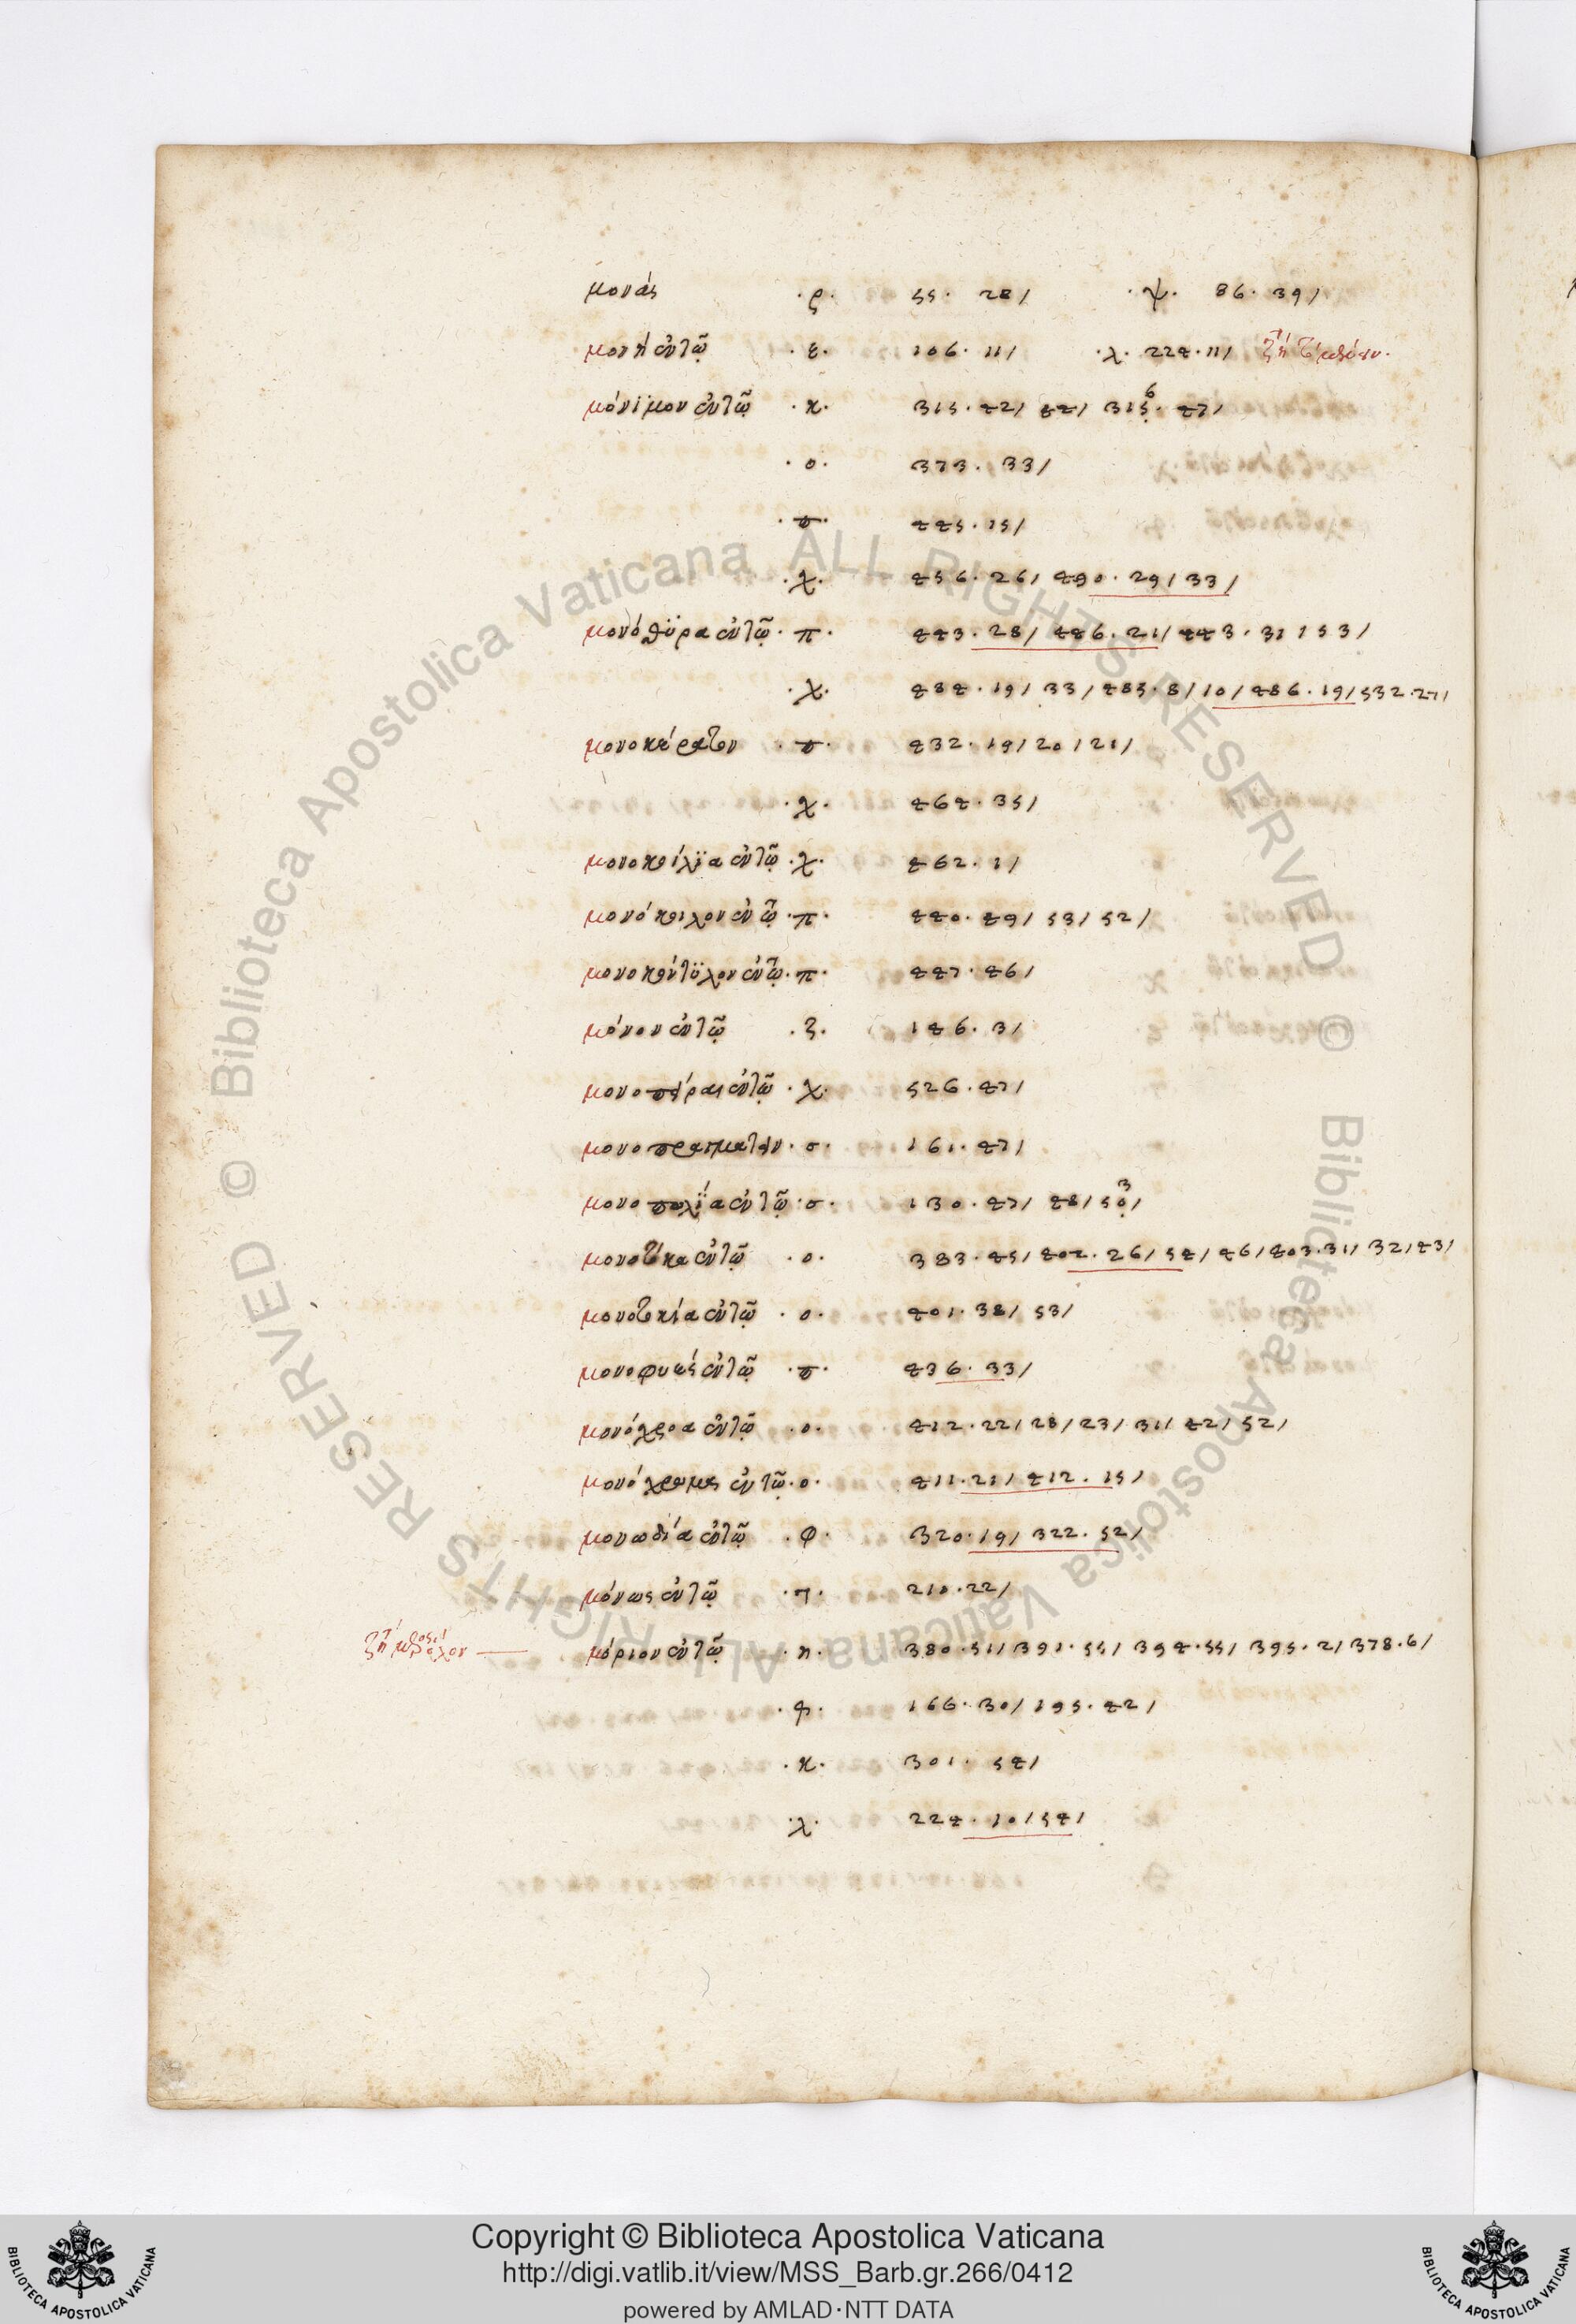 μονάς ·ρ· 55· 28/ ·ψ· 86· 39/
μονὴ ἐν τῷ ·ε· 106· 11/ ·λ· 224·11/ ζή
μόνιμον ἐν τῷ ·κ· 315·42/ 44/ 315 6· 47/
·ο· 373· 33/
·π· 445·15/
·χ· 456·26/ 490·29/33/
μονόθυρα ἐν τῷ ·π· 443·28/ 446·21/ 443·31/53/
·χ· 484·19/33/485·8/10/486·19/532·27/
μονοκέρατον ·π· 432·19/20/21/
·χ· 464·35/
μονοκοίλϊα ἐν τῷ ·χ· 462·1/
μονόκοιλον ἐν τῷ ·π· 440·49/ 53/ 52/
μονοκότϋλον ἐν τῷ ·π· 447·46/
μόνον ἐν τῷ ·ζ· 146·3/
ἐν τῷ ·χ· 526·47/
μονοπραγματεῖν ·σ· 161·47/
μονοπωλία ἐν τῷ ·σ· 130·47/ 48/50 3/
μονοτόκα ἐν τῷ ·ο· 383·45/402·26/54/46/403·31/32/43/
μονοτοκία ἐν τῷ ·ο· 401·38/ 53/
μονοφυές ἐν τῷ ·π· 436·33/
μονόχροα ἐν τῷ ·ο· 412·22/28/23/31/42/52/
μονόχρωμος ἐν τῷ ·ο· 411·21/412·15/
μονωδία ἐν τῷ ·φ· 320·19/322·52/
μόνως ἐν τῷ 210·22/
μόριον ἐν τῷ ·η· 380·51/391·55/394·55/395·2/378·6/
166·30/195·42/
·κ· 301· 54/
·λ· 224·10/54/
© Biblioteca Apostolica Vaticana ALL RIGHTS RESERVED © Biblioteca Apostolica Vaticana ALL RIGHTS RESERVED
Copyright © Biblioteca Apostolica Vaticana
http://digi.vatlib.it/view/MSS_Barb.gr.266/0412
powered by AMLAD·NTT DATA
BIBLIOTECA APOSTOLICA VATICANA
BIBLIOTECA APOSTOLICA VATICANA